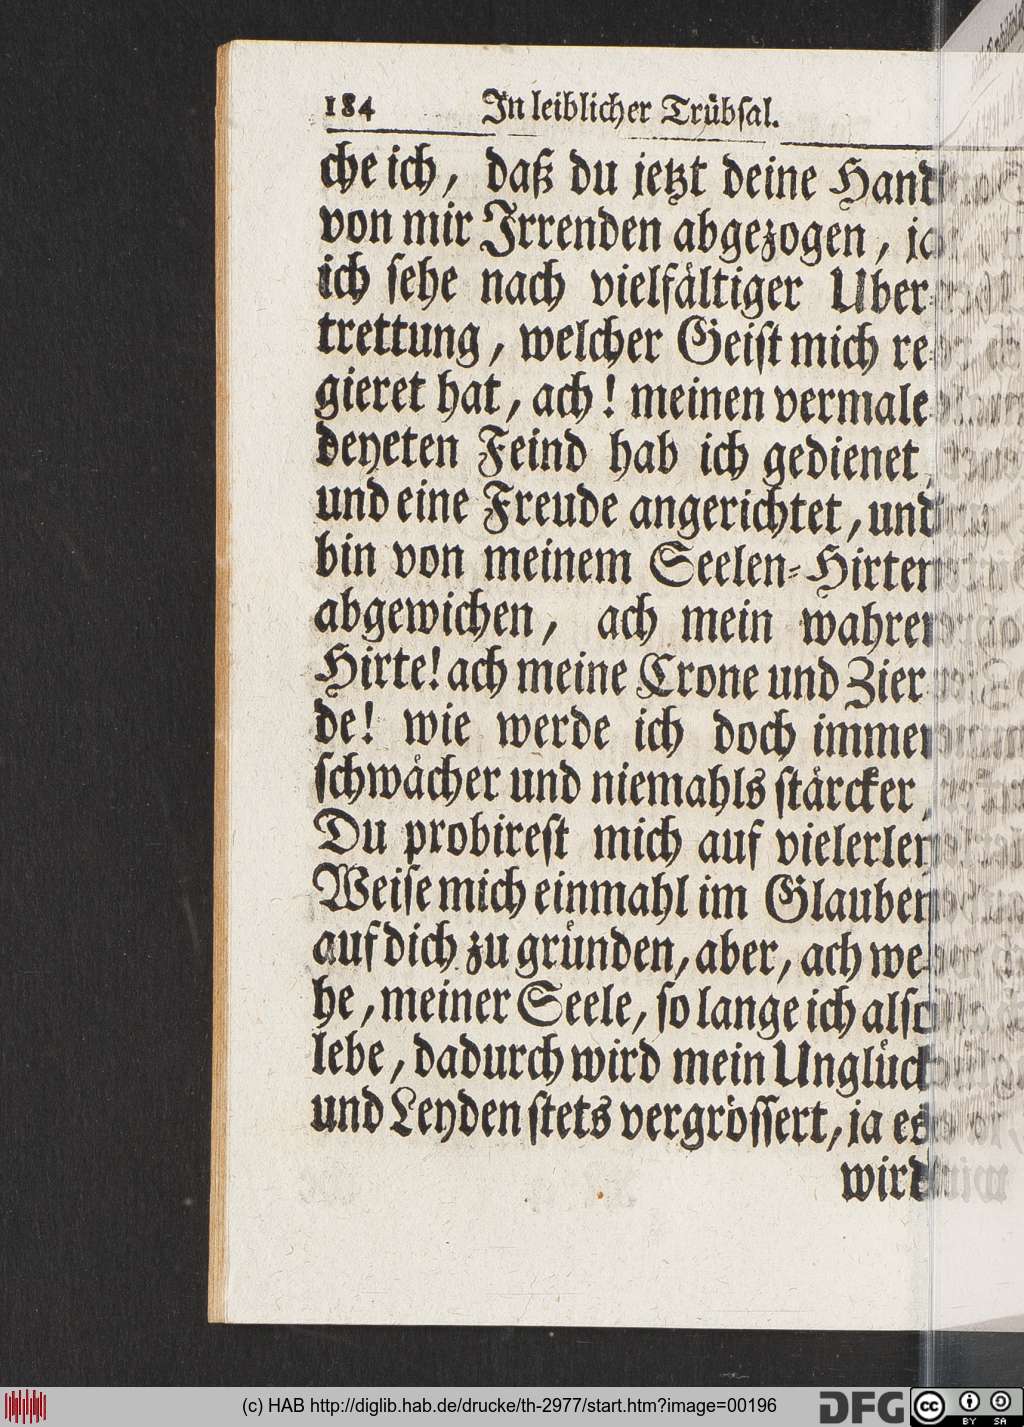 184 In leiblicher Trübsal.
che ich, daß du jetzt deine Hand
von mir Irrenden abgezogen, ja
ich sehe nach vielfältiger Uber-
trettung, welcher Geist mich re-
gieret hat, ach! meinen vermale-
deyeten Feind hab ich gedienet,
und eine Freude angerichtet, und
bin von meinem Seelen-Hirten
abgewichen, ach mein wahrer
Hirte! ach meine Crone und Zier-
de! wie werde ich doch immer
schwächer und niemahls stärcker,
Du probirest mich auf vielerley
Weise mich einmahl im Glauben
auf dich zu gründen, aber, ach we-
he, meiner Seele, so lange ich also
lebe, dadurch wird mein Unglück
und Leyden stets vergrössert, ja es
wird
(c) HAB http://diglib.hab.de/drucke/th-2977/start.htm?image=00196
DFG
cc BY SA